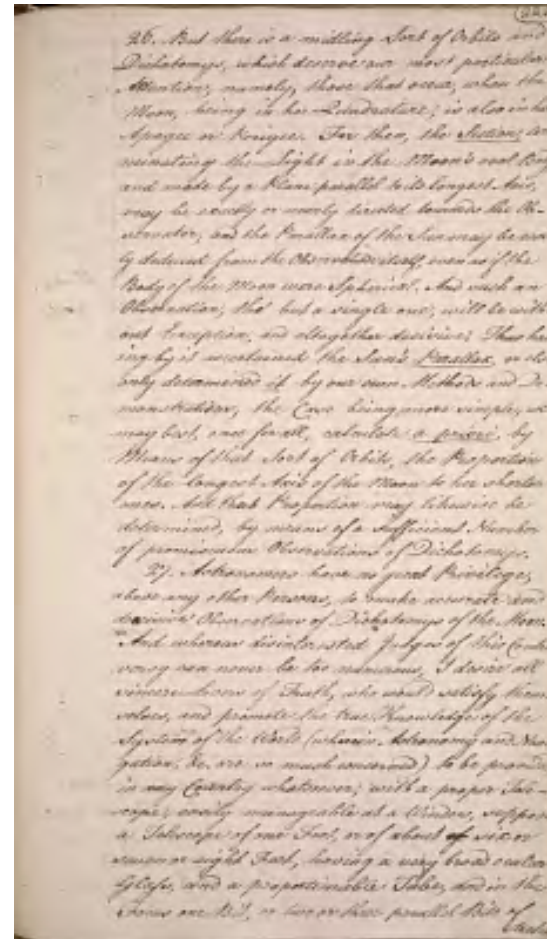 26. But there is a midling Sort of Orbits and
Dichotomys, which deserve our most particular
Attention, namely, those that occur, when the
Moon, being in her Quadrature, is also in her
Apogee or Perigee. For then, the Section, ter
minating the Light in the Moon's oval Body
and made by a Plane parallel to its longest Axis,
may be exactly or nearly directed towards the Ob-
servator, and the Parallax of the Sun may be
ly deduced from the Observation itself, even as if the
Body of the Moon were Spherical. And such an
Observation, tho' but a single one, will be with
out Exception, and altogether decisive: Thus hav
ing by it ascertained the Sun's Parallax, or
only determined it by our own Methods and De
monstrations, the Case being more simple, we
may best, once for all, calculate a priori, by
Means of that Sort of Orbits, the Proportion
of the longest Axis of the Moon to her shorter
ones. And that Proportion may likewise be
determined, by means of a sufficient Number
of promiscuous Observations of Dichotomys.
27. Astronomers have no great Privilege,
above any other Persons, to make accurate and
decisive Observations of Dichotomys of the Moon.
And whereas disinterested Judges of this Contro
versy can never be too numerous, I desire all
sincere lovers of Truth, who would satisfy them
selves, and promote the true Knowledge of the
System of the World (wherein Astronomy and Navi
gation, &c. are so much concerned) to be provided
in any Country whatsoever, with a proper Tele-
scope, easily manageable at a Window, suppose
a Telescope of one Foot, or of about six or
seven or eight Feet, having a very broad ocular
Glass, and a proportionable Tube, and in the
Focus one Bit, or two or three parallel Bits of